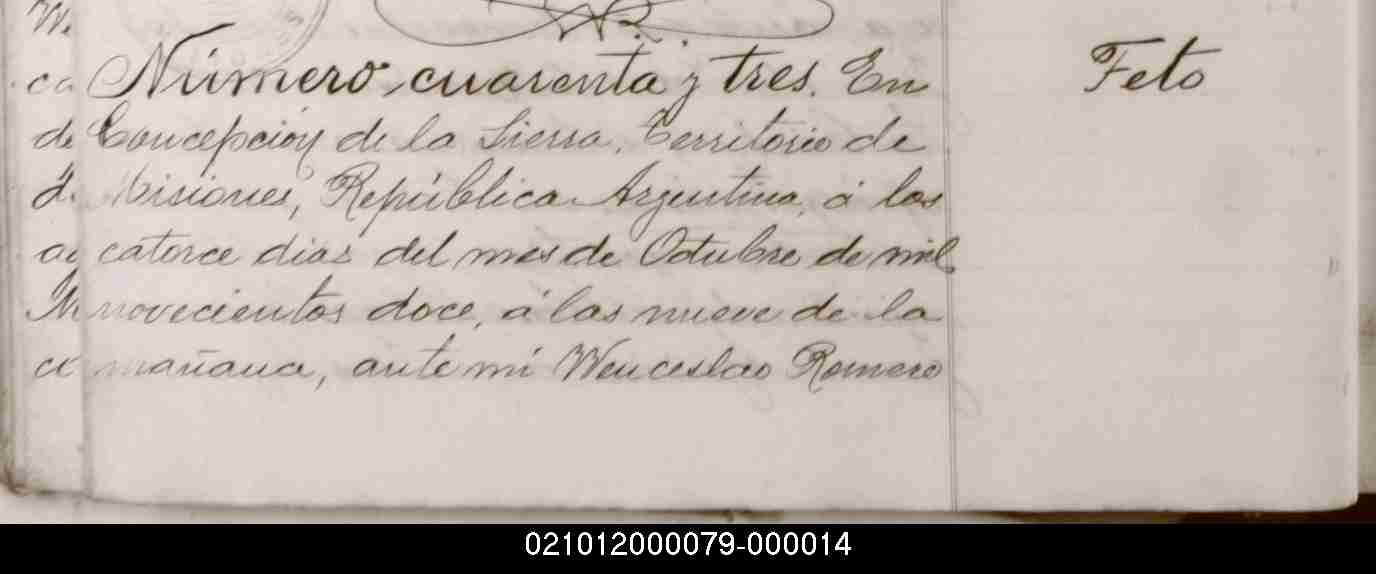 Número cuarenta y tres. En
Feto
Concepción de la Sierra, Territorio de
Misiones, República Argentina, á los
catorce dias del mes de Octubre de mil
novecientos doce, á las nueve de la
mañana, ante mi Wenceslao Romero
021012000079-000014